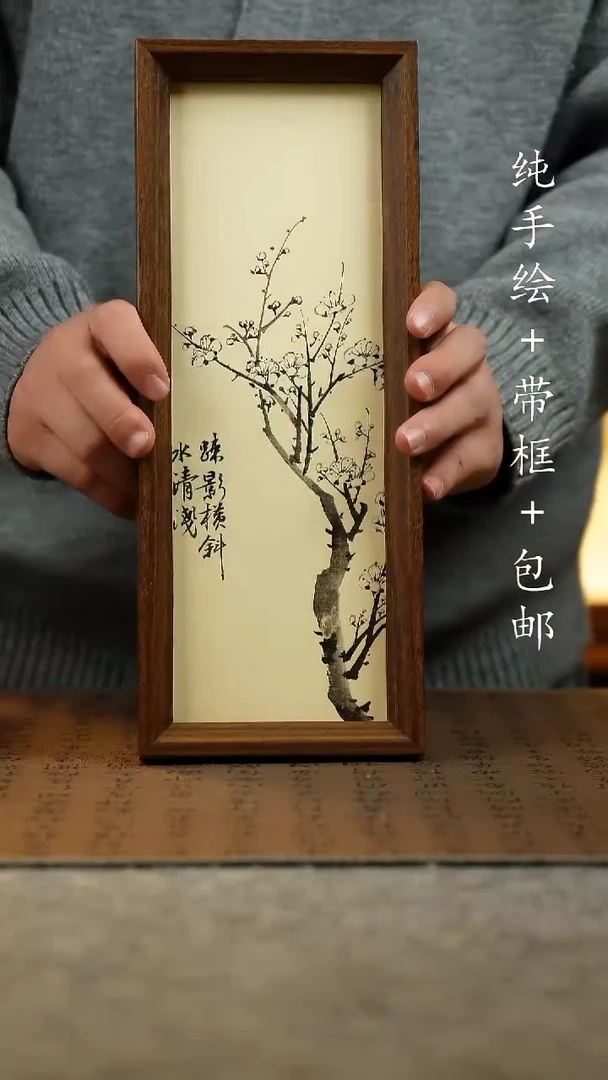 疎影横斜
水清淺
纯手绘+带框+包邮